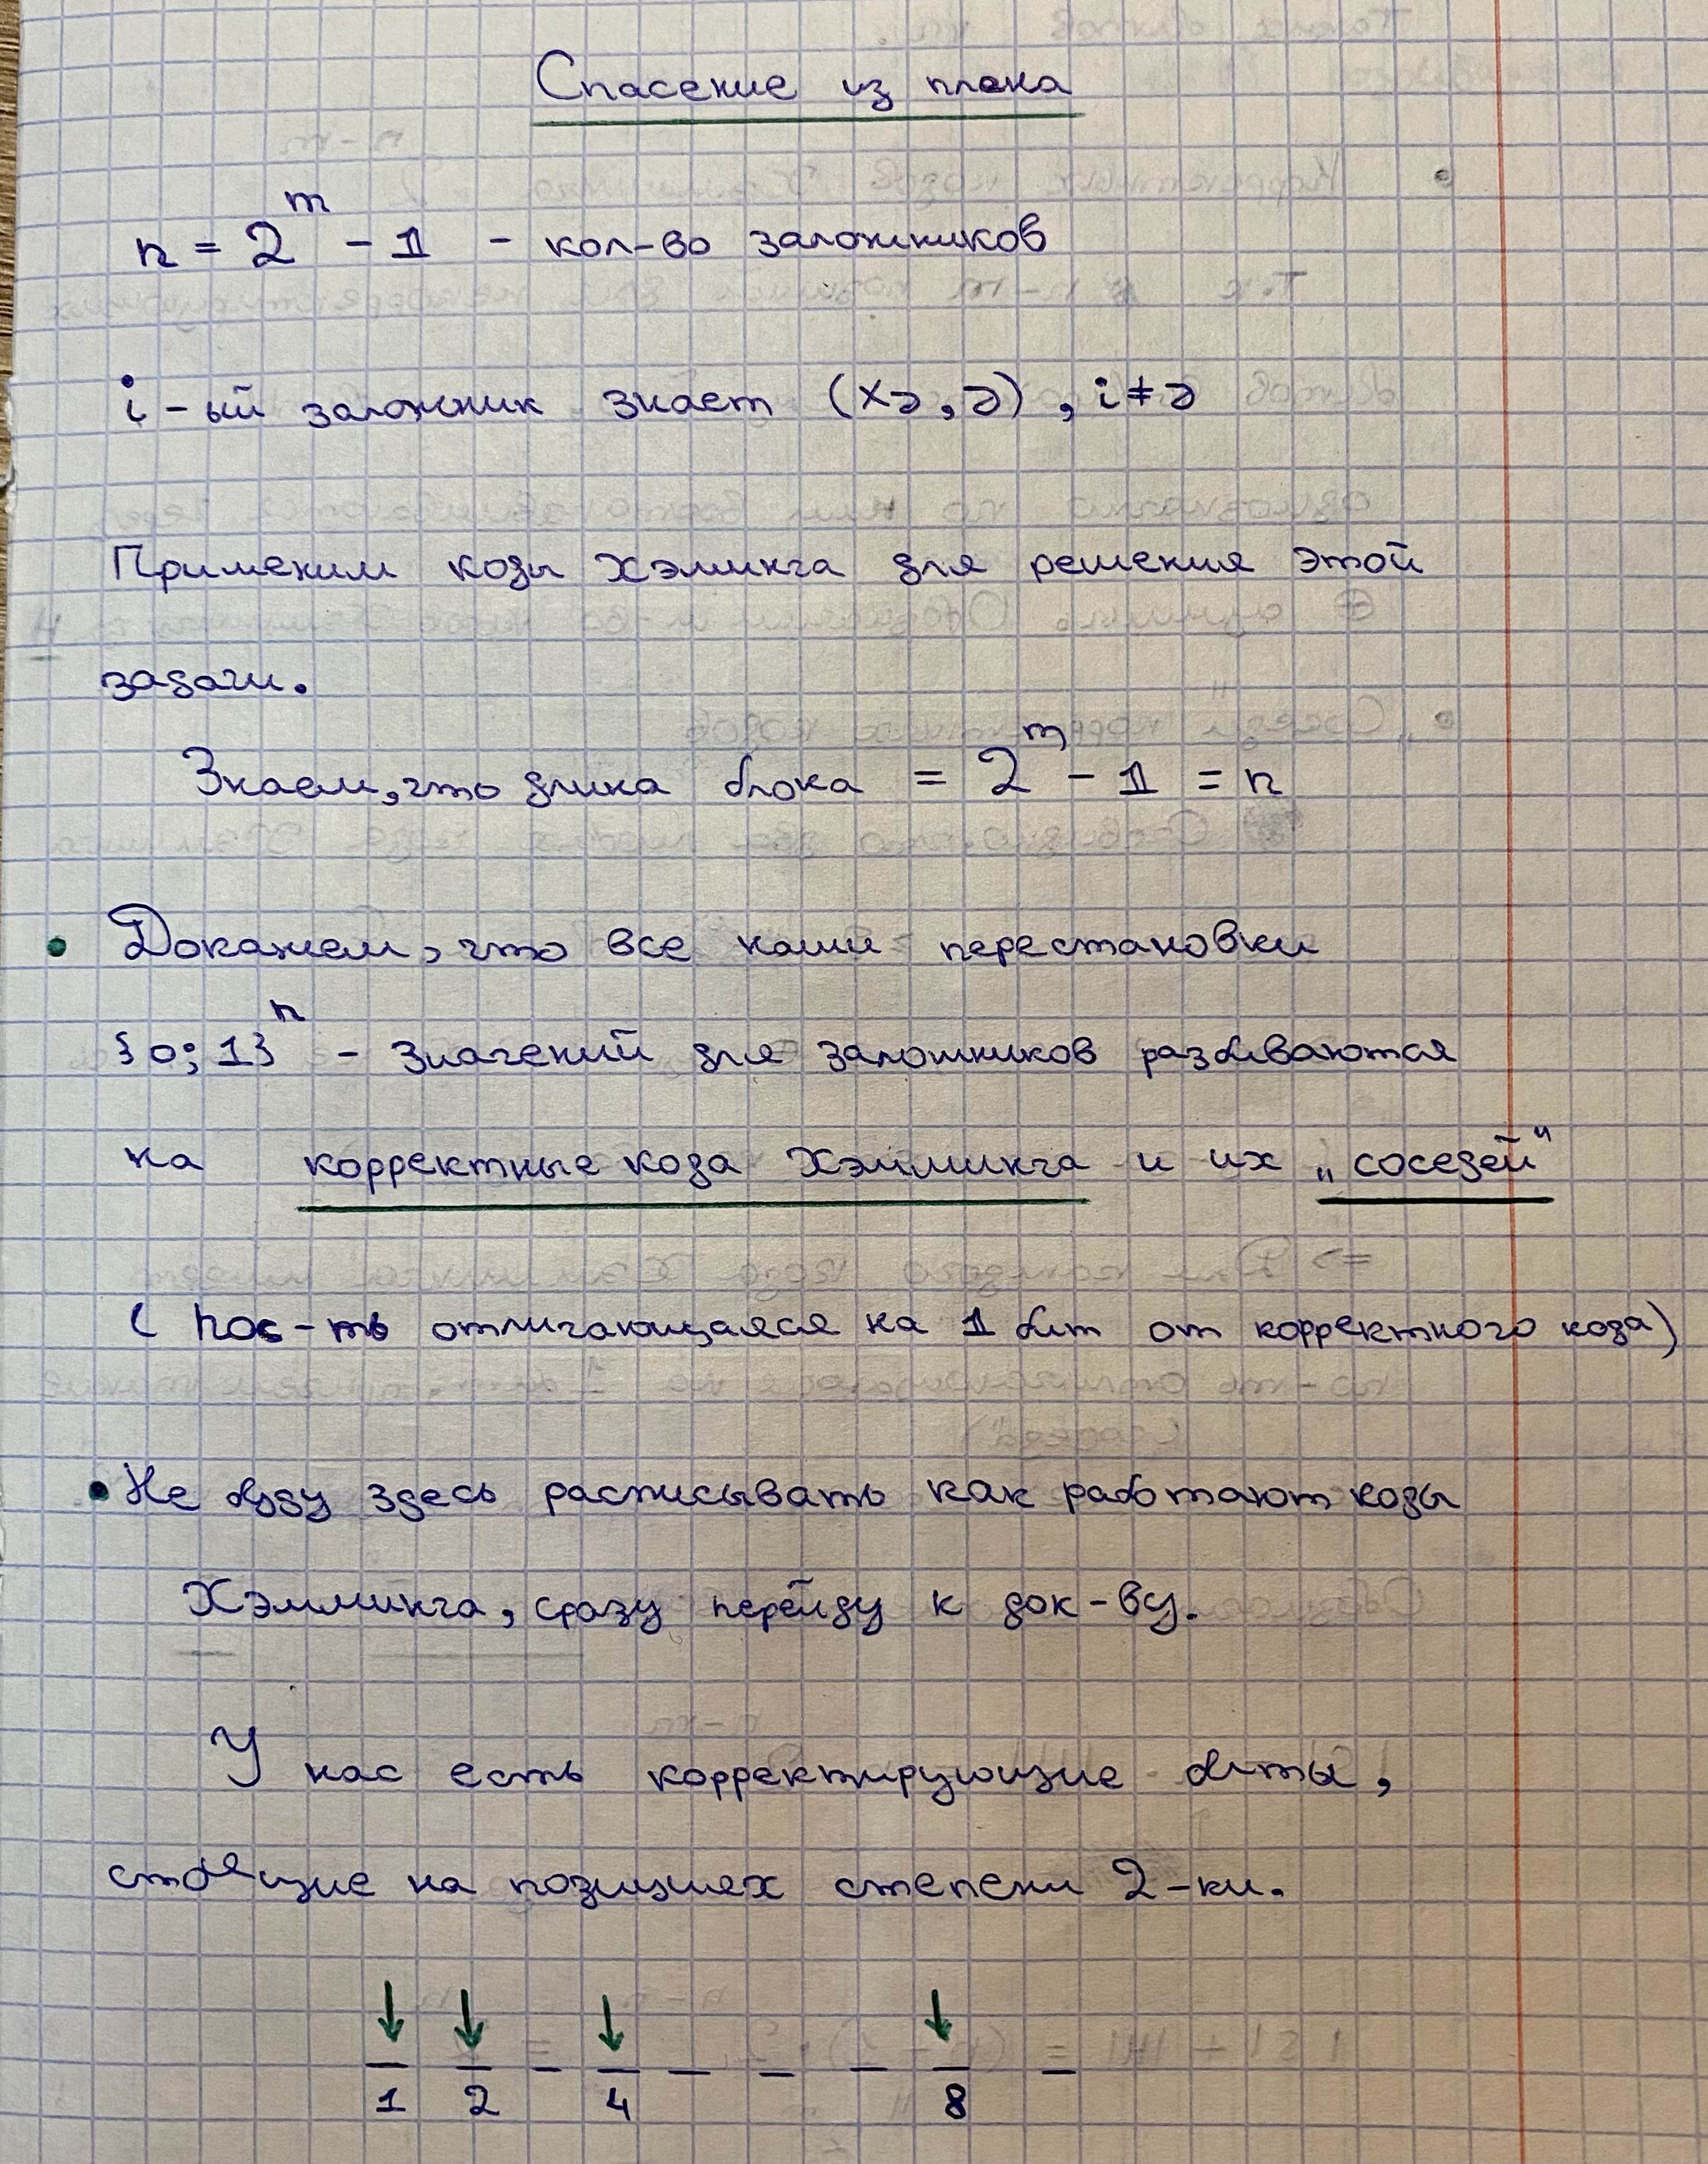 Спасение из плена
n = 2^m - 1 - кол-во заложников
i-ый заложник знает (xə, ə), i ≠ ə
Применим коды Хэминга для решения этой
задачи.
Знаем, что длина блока = 2^m - 1 = n
• Докажем, что все наши перестановки
{0; 1}^n - значений для заложников разбиваются
на корректные кода Хэмминга и их „соседей“
( пос-ть отличающаяся на 1 бит от корректного кода)
• Не буду здесь расписывать как работают коды
Хэмминга, сразу перейду к док-ву.
У нас есть корректирующие биты,
стоящие на позициях степени 2-ки.
↓ ↓ ↓ ↓
1 2 4 8